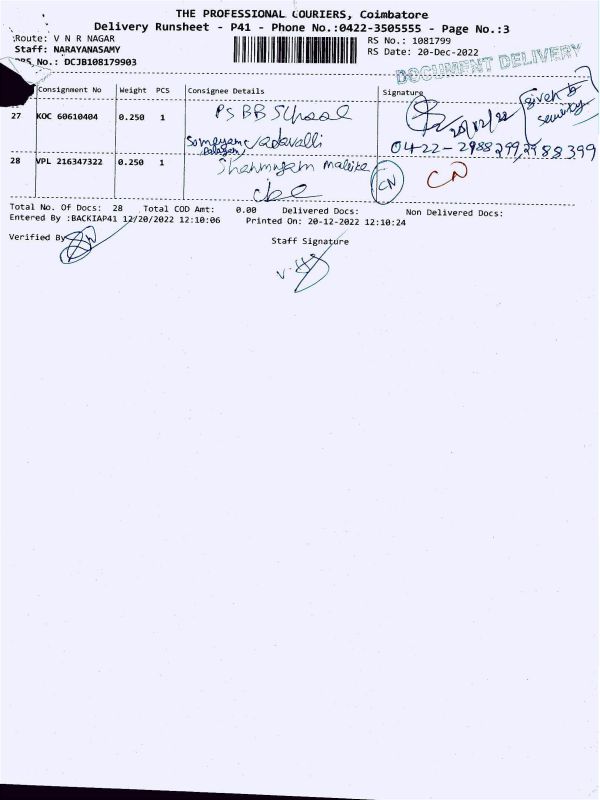 THE PROFESSIONAL COURIERS, Coimbatore
Delivery Runsheet - P41 - Phone No.:0422-3505555 - Page No.:3
Route: V N R NAGAR
RS No.: 1081799
Staff: NARAYANASAMY
RS Date: 20-Dec-2022
DRS No.: DCJB108179903
DOCUMENT DELIVERY
Consignment No Weight PCS Consignee Details Signature
27 KOC 60610404 0.250 1 PSBB School
20/12/22
given to security
Somayampalayam, vadavalli
0422-2988299,2988399
28 VPL 216347322 0.250 1 Shanmugam
cbe
CN CN
Total No. Of Docs: 28 Total COD Amt: 0.00 Delivered Docs: Non Delivered Docs:
Entered By :BACKIAP41 12/20/2022 12:10:06 Printed On: 20-12-2022 12:10:24
Verified By
Staff Signature